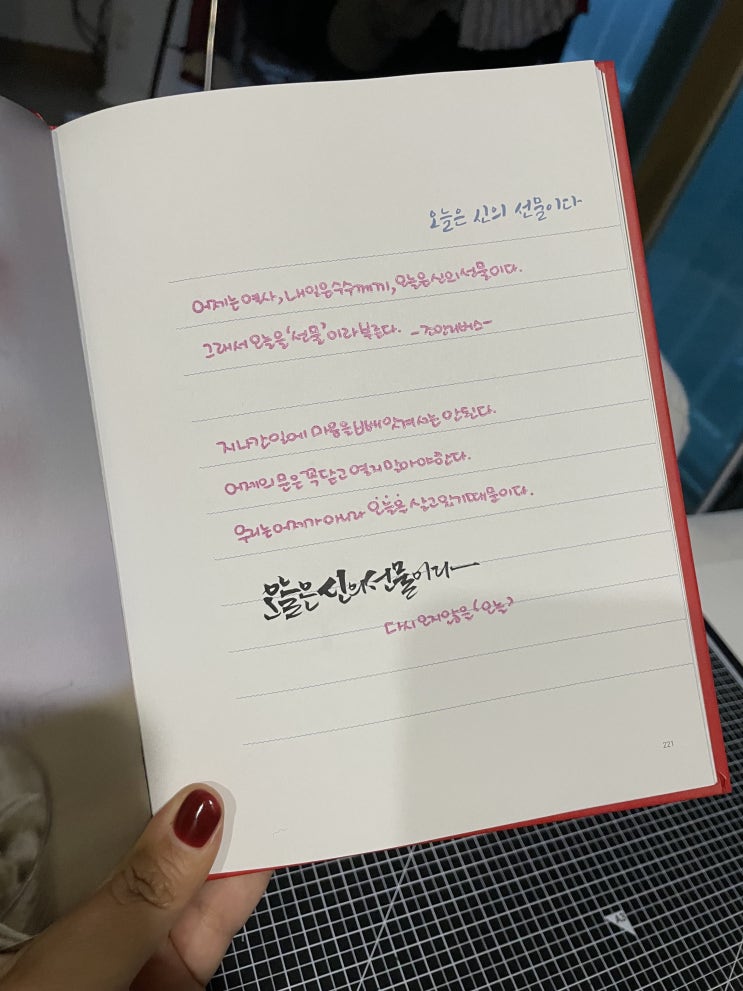 오늘은 신의 선물이다
어제는 역사, 내일은 수수께끼, 오늘은 신의 선물이다.
그래서 오늘을 '선물'이라 부른다. -조안리버스-
지나간 일에 마음을 뺏겨서는 안된다.
어제의 문은 꼭 닫고 열지 말아야한다.
우리는 어제가 아니라 오늘을 살고 있기 때문이다.
오늘은 신의 선물이다
다시 오지않을 '오늘'
221
A5